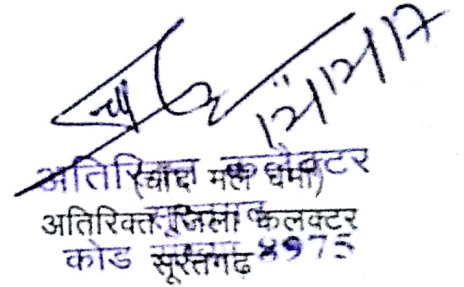 12/12/17
अतिरिक्त कलेक्टर
(चांद मल वर्मा)
अतिरिक्त जिला कलक्टर
सूरतगढ
कोड 8975